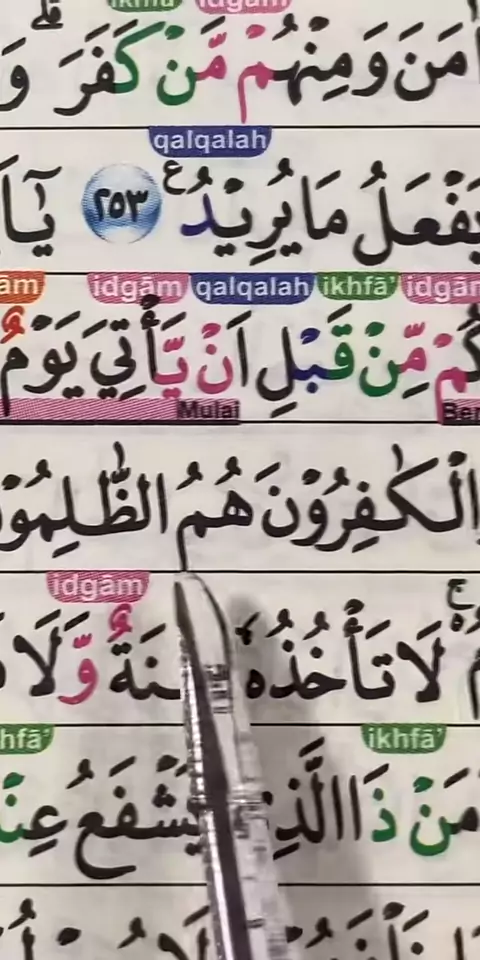 ikhfā' idgām
اٰمَنَ وَمِنْهُمْ مَّنْ كَفَرَ ۗ وَ
qalqalah
يَفْعَلُ مَا يُرِيْدُ ࣖ ٢٥٣ يٰٓا
idgām qalqalah ikhfā' idgām
كُمْ مِّنْ قَبْلِ اَنْ يَّأْتِيَ يَوْمٌ
Mulai
الْكٰفِرُوْنَ هُمُ الظّٰلِمُوْ
idgām
لَا تَأْخُذُهٗ نَةٌ وَّلَا
ikhfā' ikhfā'
مَنْ ذَا الَّذِ يَشْفَعُ عِنْ